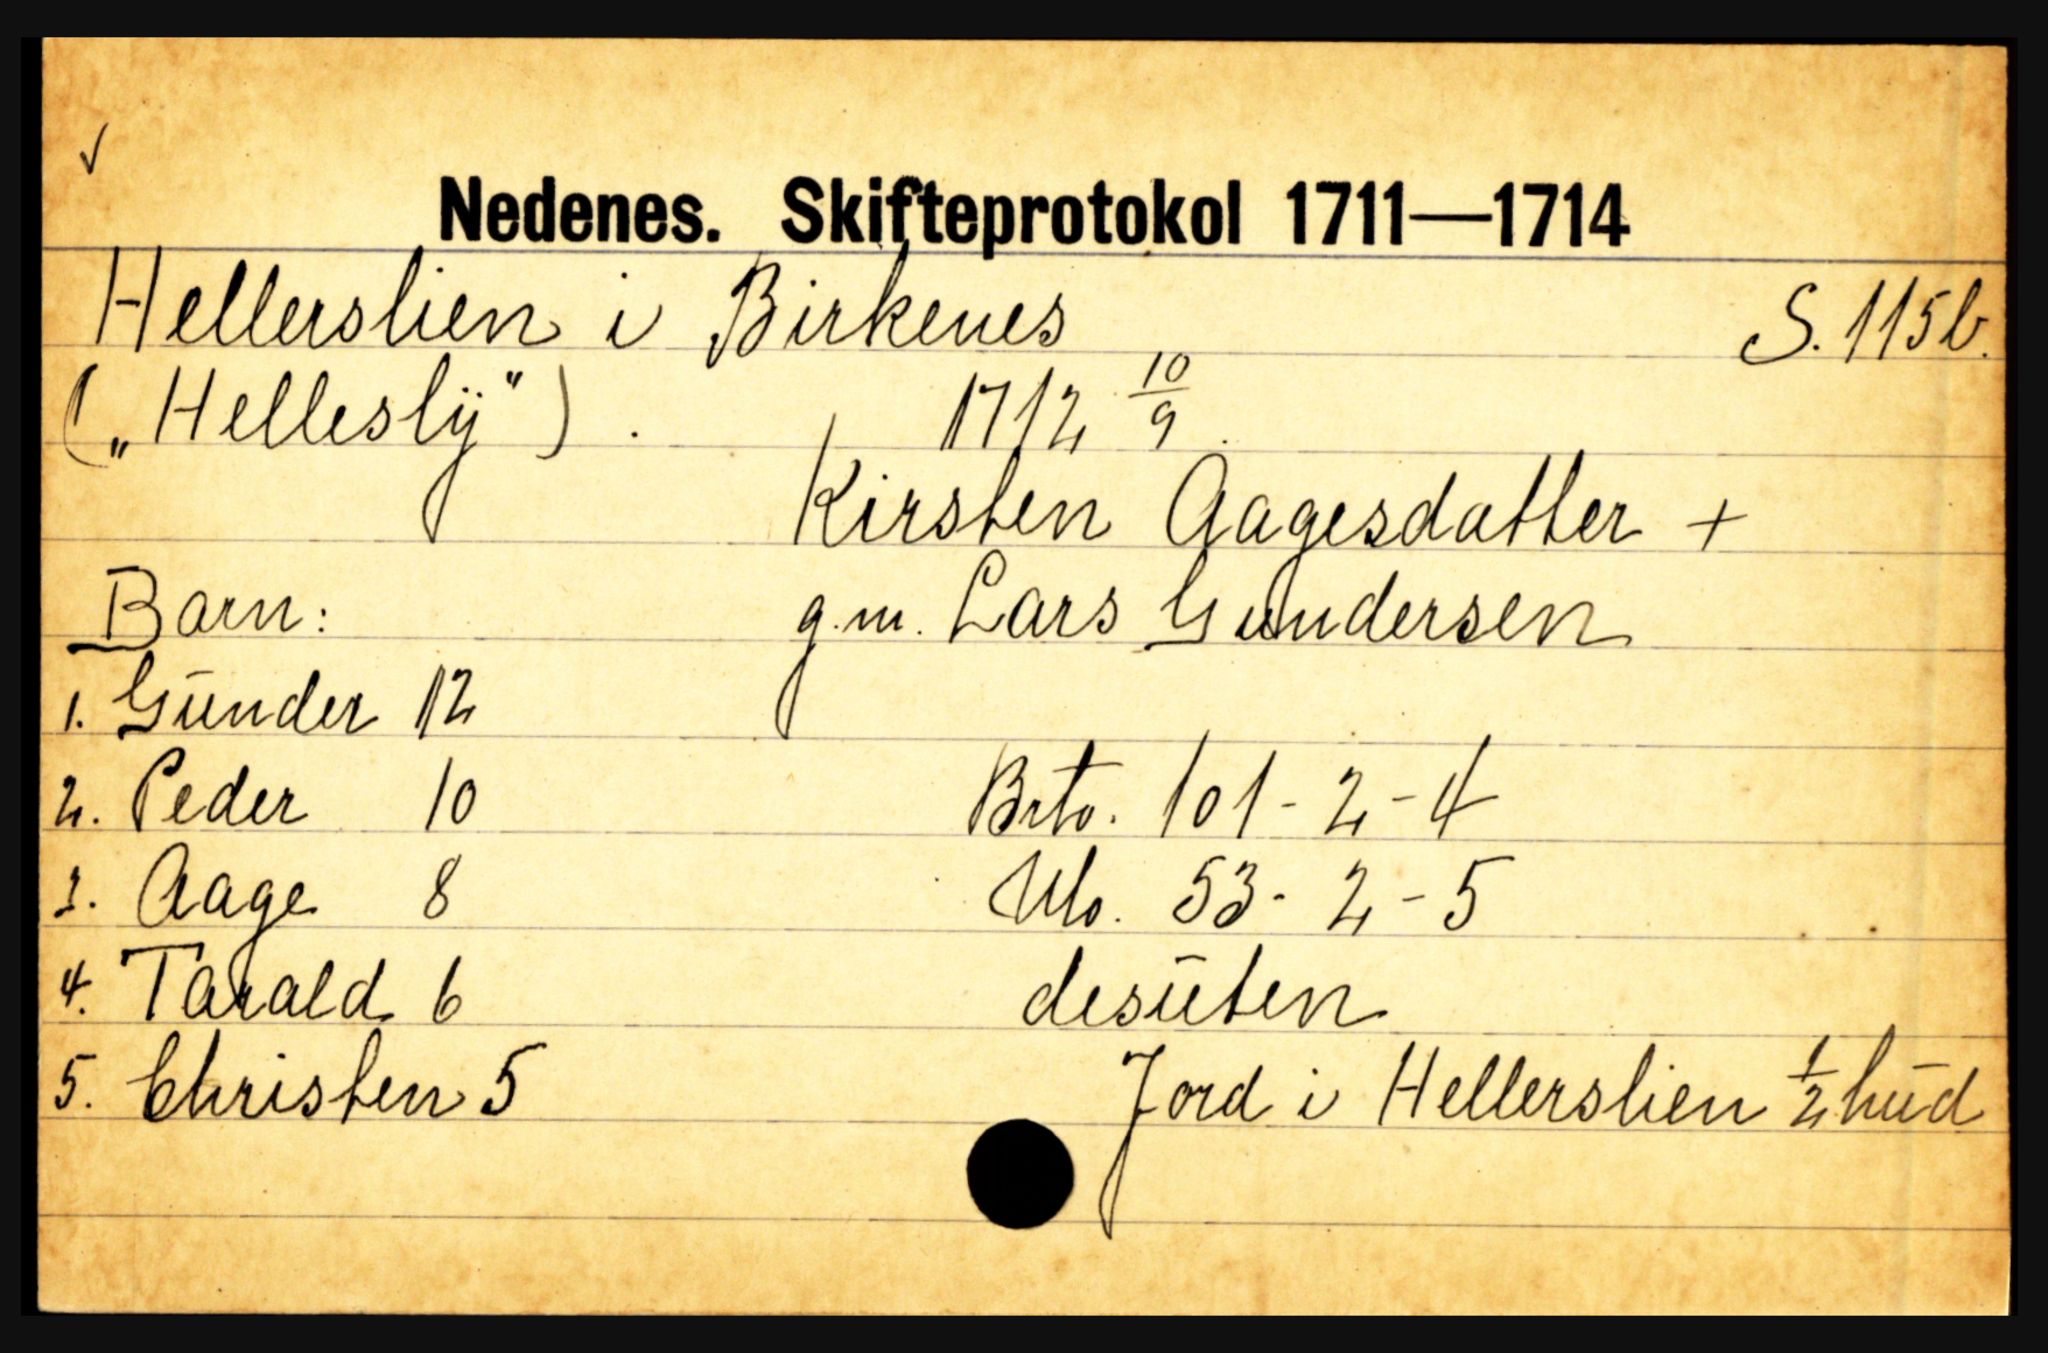 ✓
Nedenes. Skifteprotokol 1711—1714
Hellerslien i Birkenes S. 115b.
(„Helleslÿ") . 1712 10/9.
Kirsten Aagesdatter +
Barn: g.m. Lars Gundersen
1. Gūnder 12
2. Peder 10 Brto. 101-2-4
3. Aage 8 Nto. 53-2-5
4. Tarald 6 desūten
5. Christen 5 Jord i Hellerslien 1/2 hūd